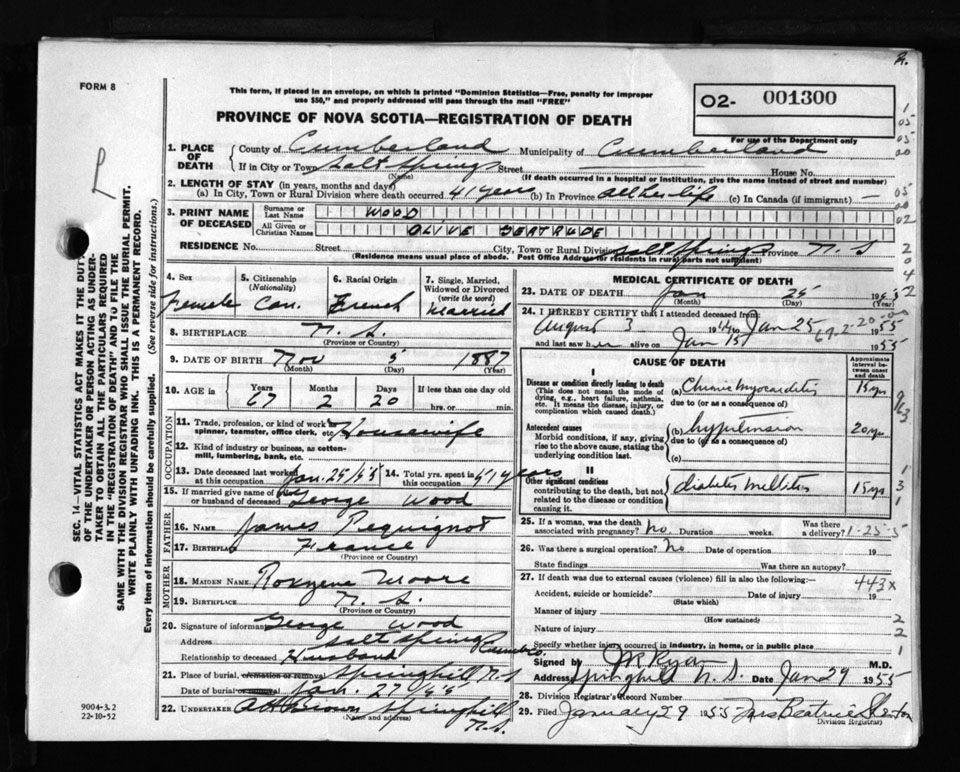 2.
FORM 8
This form, if placed in an envelope, on which is printed "Dominion Statistics—Free, penalty for improper
use $50," and properly addressed will pass through the mail "FREE"
PROVINCE OF NOVA SCOTIA—REGISTRATION OF DEATH
02- 001300
For use of the Department only
1. PLACE OF DEATH County of Cumberland Municipality of Cumberland
If in City or Town Salt Springs Street House No.
(Name) (If death occurred in a hospital or institution, give the name instead of street and number)
2. LENGTH OF STAY (in years, months and days)
(a) In City, Town or Rural Division where death occurred 41 years (b) In Province all her life (c) In Canada (if immigrant) -
3. PRINT NAME OF DECEASED Surname or Last Name WOOD
All Given or Christian Names OLIVE GERTRUDE
RESIDENCE No. Street City, Town or Rural Division Salt Springs Province N. S
(Residence means usual place of abode. Post Office Address for residents in rural parts not sufficient)
4. Sex Female
5. Citizenship (Nationality) Can.
6. Racial Origin French
7. Single, Married, Widowed or Divorced (write the word) Married
8. BIRTHPLACE N. S.
(Province or Country)
9. DATE OF BIRTH Nov 5 1887
(Month) (Day) (Year)
10. AGE IN Years 67 Months 2 Days 20 If less than one day
hrs. or min.
OCCUPATION
11. Trade, profession, or kind of work as spinner, teamster, office clerk, etc. Housewife
12. Kind of industry or business, as cotton-mill, lumbering, bank, etc.
13. Date deceased last worked at this occupation Jan. 25/55 14. Total yrs. spent in this occupation 51 years
15. If married give name of husband of deceased George Wood
FATHER
16. NAME James Pequignot
17. BIRTHPLACE France
(Province or Country)
MOTHER
18. MAIDEN NAME Moore
19. BIRTHPLACE N. S.
(Province or Country)
20. Signature of informant George Wood
Address Salt Springs Cumb. Co.
Relationship to deceased Husband
21. Place of burial, cremation or removal Springhill N. S
Date of burial Jan. 27/55
22. UNDERTAKER A H Brown Springhill
(Name and address) N. S.
MEDICAL CERTIFICATE OF DEATH
23. DATE OF DEATH Jan 25 1955
(Month) (Day) (Year)
24. I HEREBY CERTIFY that I attended deceased from:
August 3 to Jan 25 1955
67-2-20
and last saw her alive on Jan 15 1955
CAUSE OF DEATH
Approximate interval between onset and death
I
Disease or condition directly leading to death (This does not mean the mode of dying, e.g., heart failure, asthenia, etc. It means the disease, injury, or complication which caused death.)
(a) Chronic myocarditis 15 yrs
due to (or as a consequence of)
Antecedent causes
Morbid conditions, if any, giving rise to the above cause, stating the underlying condition last.
(b) hypertension 20 yrs
due to (or as a consequence of)
(c)
II
Other significant conditions contributing to the death, but not related to the disease or condition causing it.
diabetes mellitus 15 yrs
25. If a woman, was the death associated with pregnancy? No Duration weeks. Was there a delivery? 1-25-5
26. Was there a surgical operation? No Date of operation 19
State findings Was there an autopsy?
27. If death was due to external causes (violence) fill in also the following:—
443X
Accident, suicide or homicide? Date of injury 19
(State which)
Manner of injury
(How sustained)
Nature of injury
Specify whether injury occurred in industry, in home, or in public place
Signed by J R Ryan M.D.
Address Springhill N. S. Date Jan 29 1955
28. Division Registrar's Record Number
29. Filed January 29 1955 Mrs Beatrice
Division Registrar
SEC. 14—VITAL STATISTICS ACT MAKES IT THE DUTY
OF THE UNDERTAKER OR PERSON ACTING AS UNDER-
TAKER TO OBTAIN ALL THE PARTICULARS REQUIRED
IN THE "REGISTRATION OF DEATH" AND TO FILE THE
SAME WITH THE DIVISION REGISTRAR WHO SHALL ISSUE THE BURIAL PERMIT.
WRITE PLAINLY WITH UNFADING INK. THIS IS A PERMANENT RECORD.
Every item of information should be carefully supplied. (See reverse side for instructions.)
9004-3.2
22-10-52